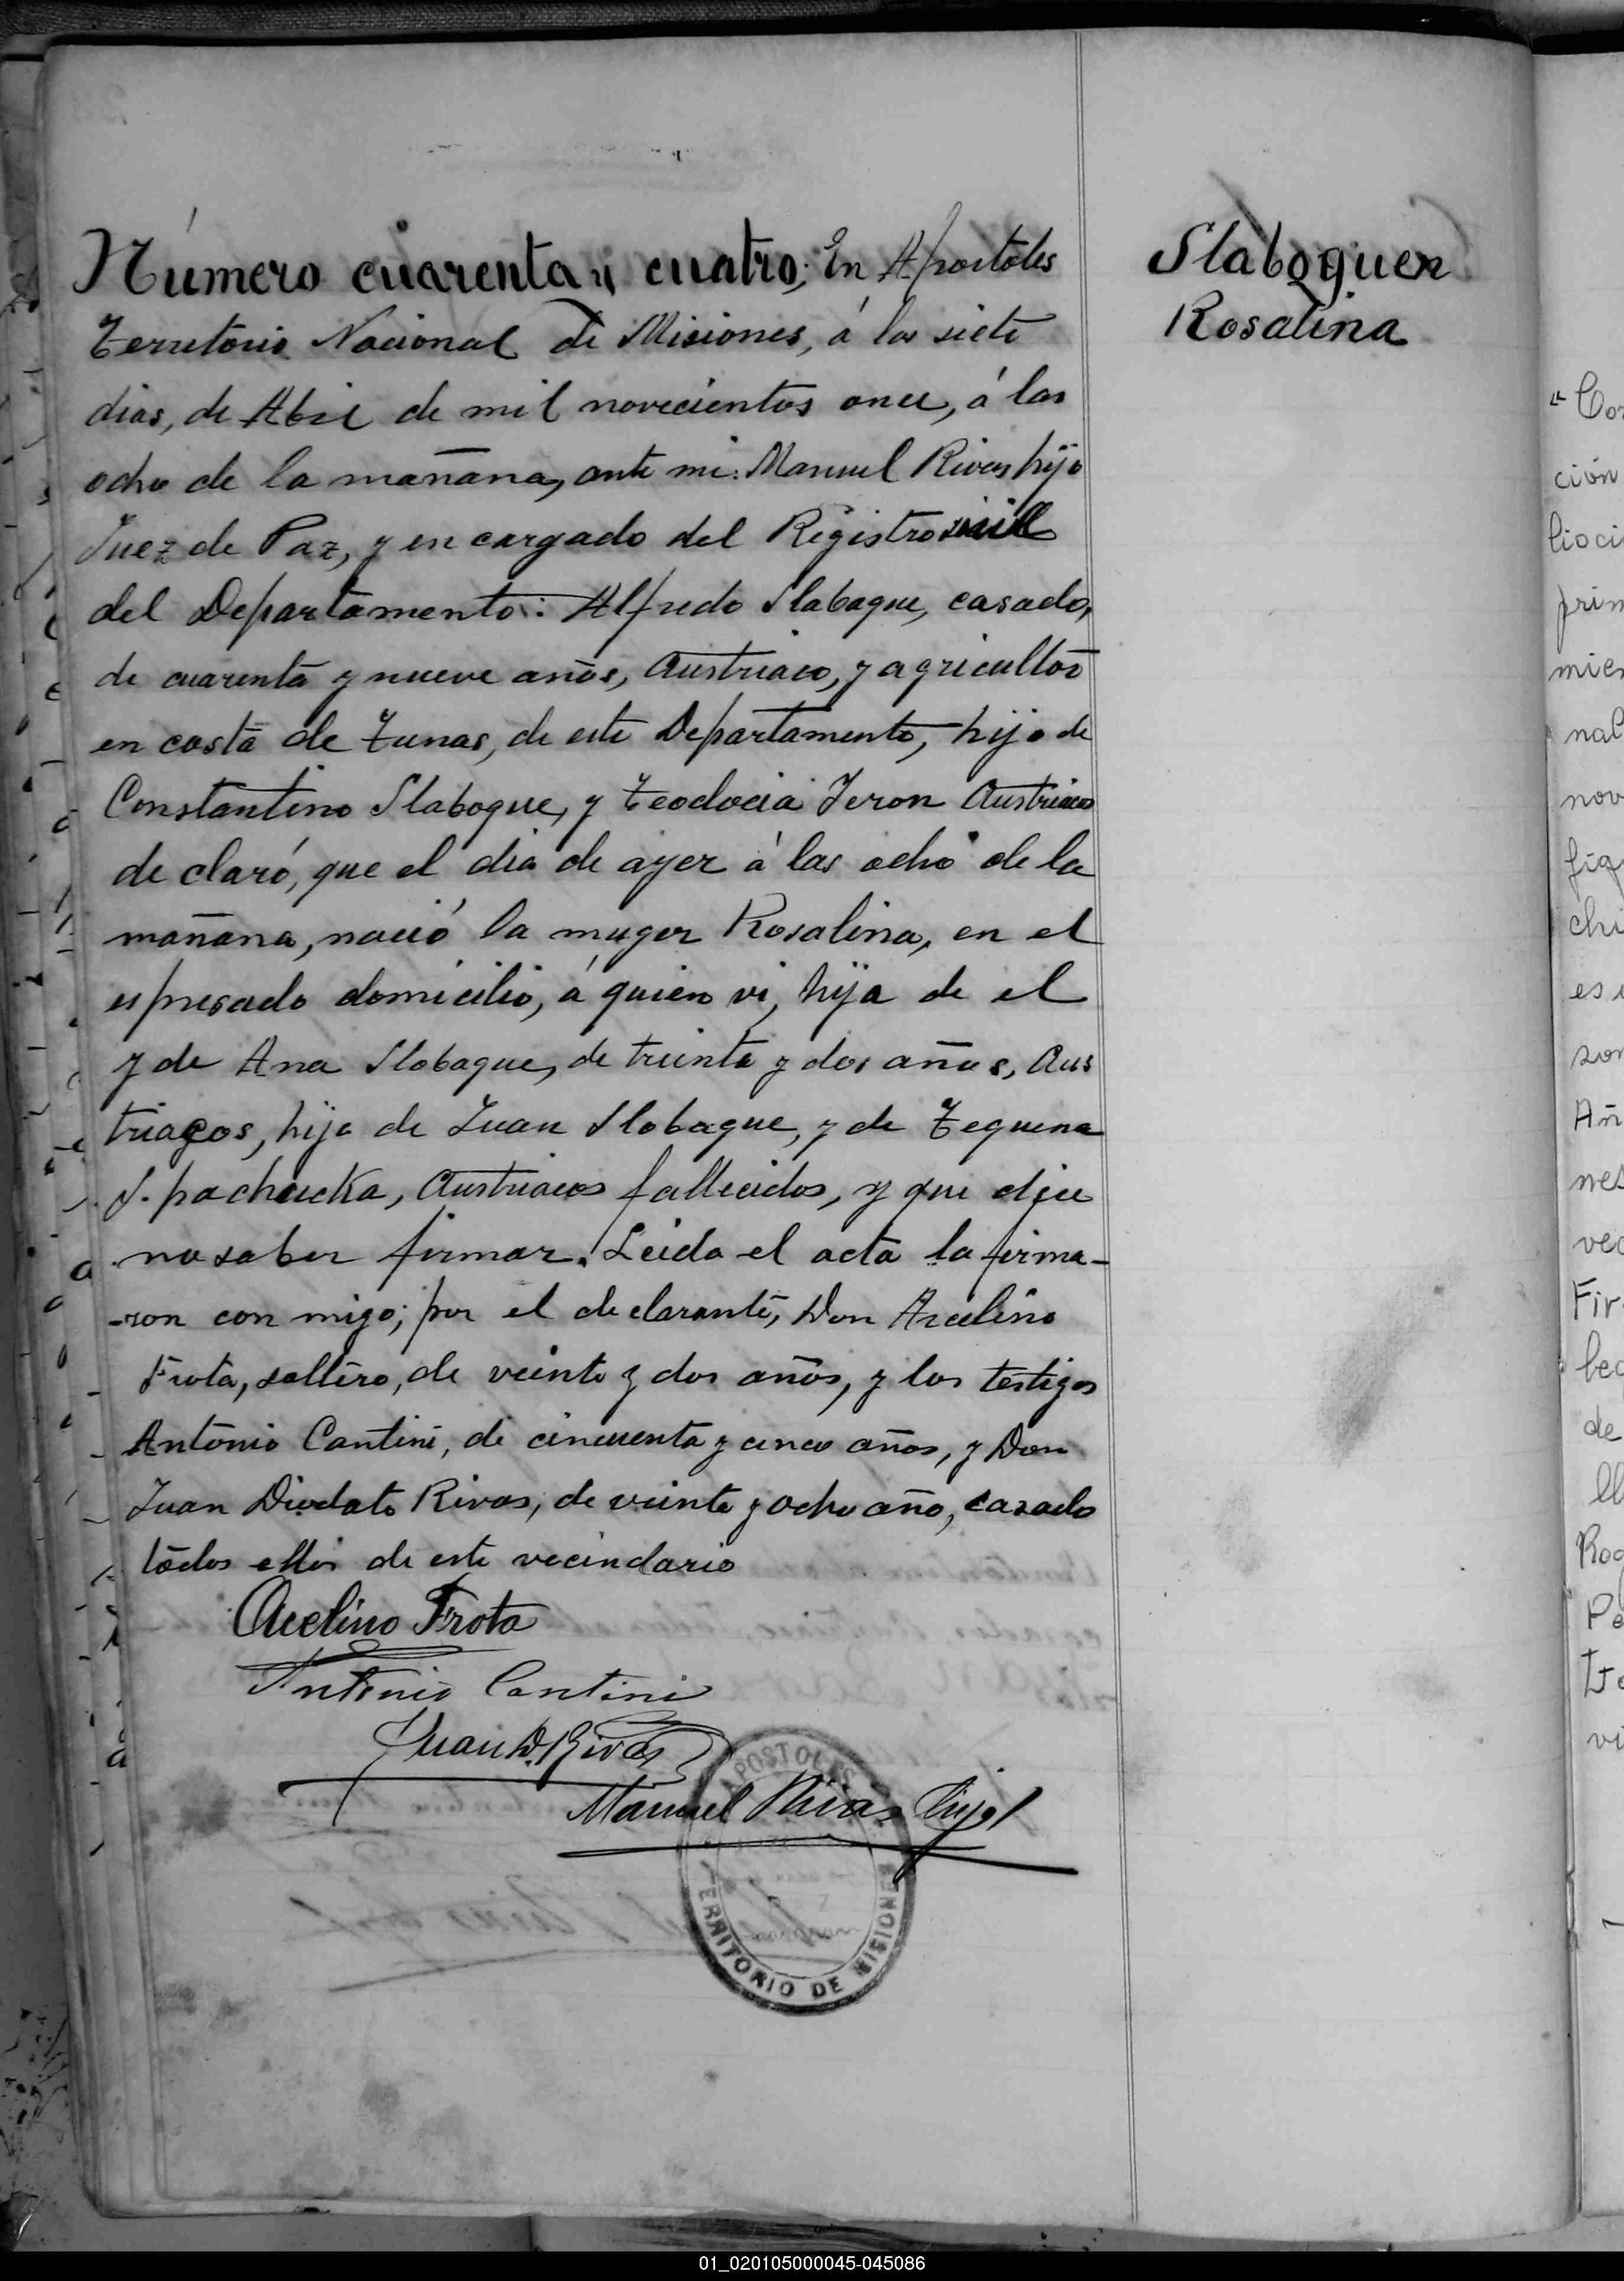 Número cuarenta y cuatro; En Apostoles
Territorio Nacional de Misiones, á los siete
dias, de Abril de mil novecientos once, á las
ocho de la mañana, ante mi: Manuel Rivas hijo
Juez de Paz, y en cargado del Registro civil
del Departamento: Alfredo Slabogue, casado,
de cuarenta y nueve años, Austriaco, y agricultor
en costa de Tunas, de este Departamento, hijo de
Constantino Slabogue, y Teodocia Jeron Austriacos
de claró, que el dia de ayer á las ocho de la
mañana, nació la muger Rosalina, en el
espresado domicilio, á quien vi, hija de el
y de Ana Slobague, de treinta y dos años, Aus
triacos, hija de Juan Slobague, y de Tequena
S. pachucka, Austriacos fallecidos, y que dice
no saber firmar. Leida el acta la firma-
-ron con migo; por el de clarante, Don Avelino
Frota, soltero, de veinte y dos años, y los testigos
Antonio Cantini, de cincuenta y cinco años, y Don
Juan Diodato Rivas, de veinte y ocho año, casado
todos ellos de este vecindario
Avelino Frota
Antonio Cantini
Juan D. Rivas
Manuel Rivas hijo
APOSTOLES
TERRITORIO DE MISIONES
Slaboguen
Rosalina
"Cor
ción
lio ci
prim
mien
nal
nov
fig
chi
es
son
Añ
nes
vec
Fir
bec
de
Roq
Pe
vi
01_020105000045-045086